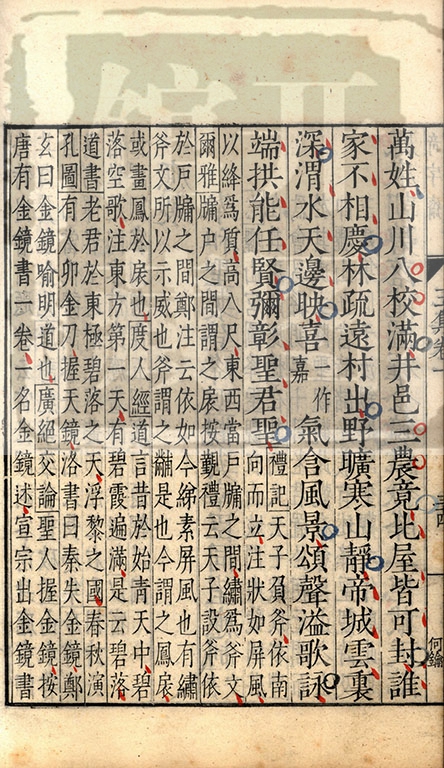 萬姓山川八校滿井邑三農竟比屋皆可封誰
家不相慶林疏遠村出野曠寒山靜帝城雲裏
深渭水天邊映喜一作嘉氣含風景頌聲溢歌詠
端拱能任賢彌彰聖君聖
禮記天子負斧依南
向而立注狀如屏風
以絳爲質高八尺東西當戸牖之間繡爲斧文
爾雅牖戸之間謂之扆按覲禮云天子設斧依
於戸牖之間鄭注云依如今綈素屏風也有繡
斧文所以示威也斧謂之黼是也今謂之鳳扆
或畫鳳於扆也度人經道言昔於始青天中碧
落空歌注東方第一天有碧霞遍滿是云碧落
道書老君於東極碧落之天浮黎之國春秋演
孔圖有人卯金刀握天鏡洛書曰秦失金鏡鄭
玄曰金鏡喻明道也廣絕交論聖人握金鏡按
唐有金鏡書卷一名金鏡述宣宗出金鏡書